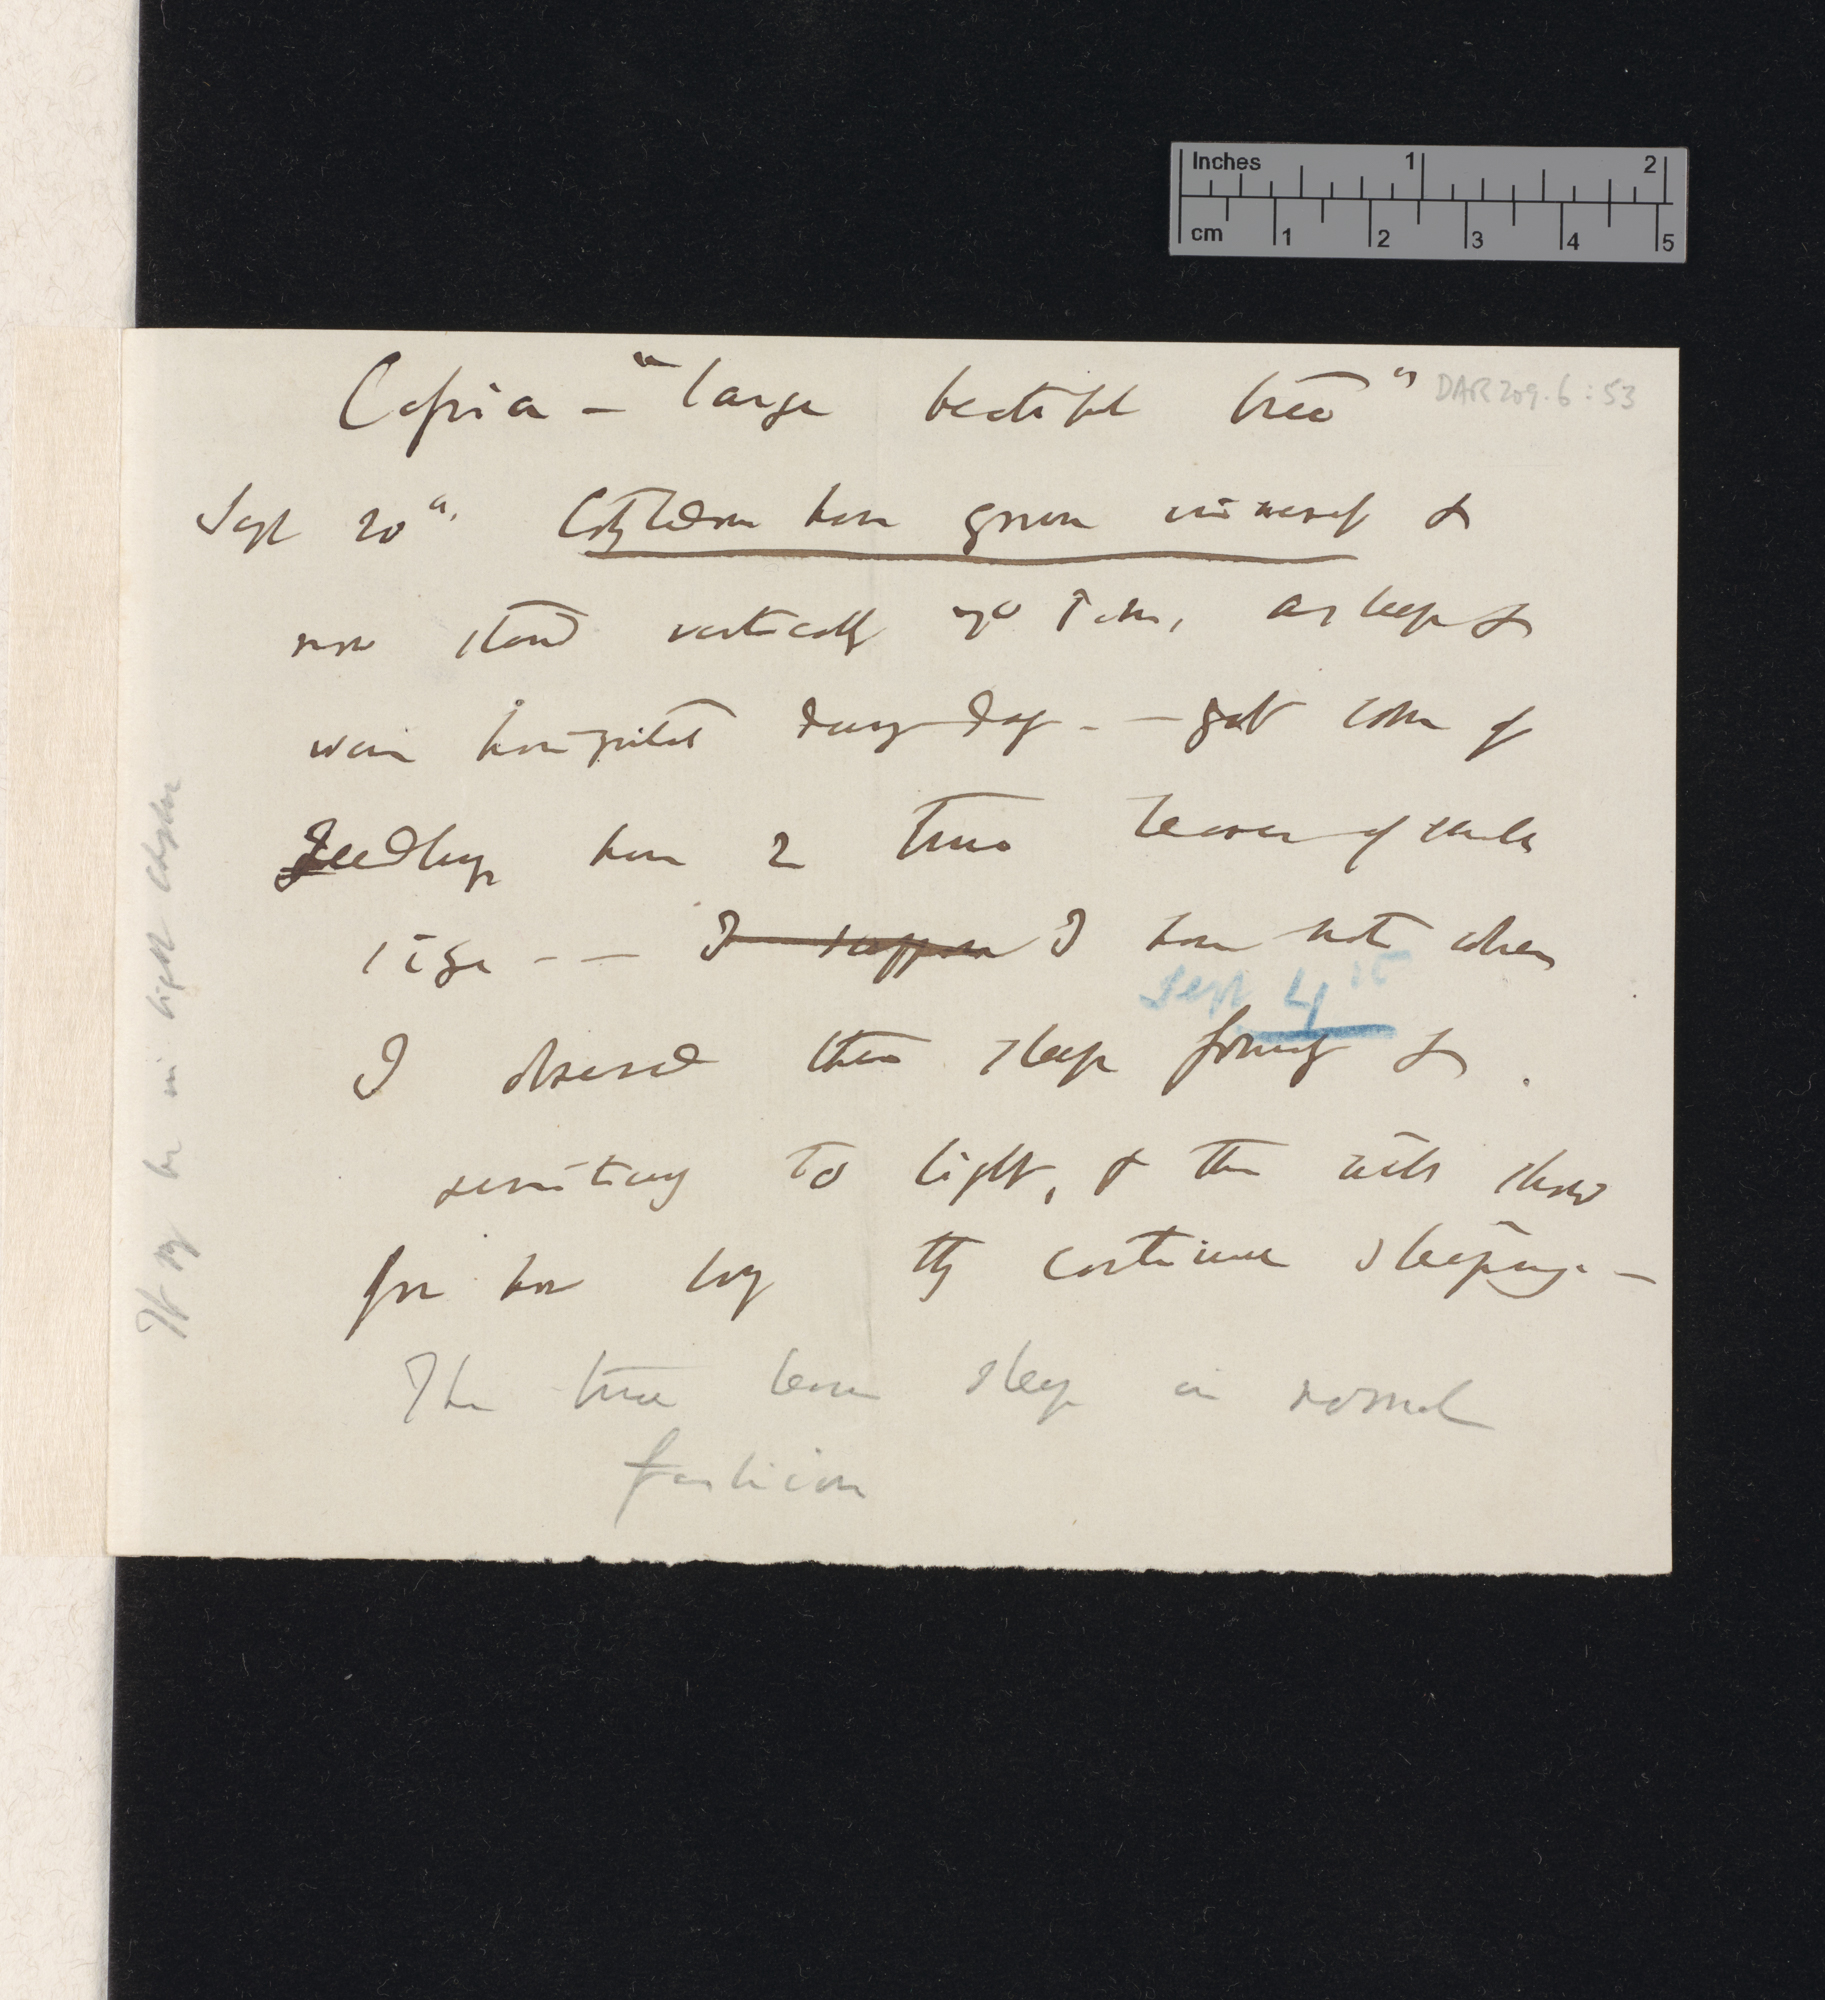 Cassia — "large beautiful tree"
DAR 209.6:53
Sept 20th. Cotyledons have grown immensely &
now stand vertically up 7 P.m., asleep &
were horizontal during day. — but some of
Seedlings have 2 true leaves of
size — — I suppose I have note when
Sept. 4th
I observed these sleep formerly &
sensitivity to light, & this will show
for how long they continue sleeping. —
The true leaves sleep in normal
fashion
It may be in light